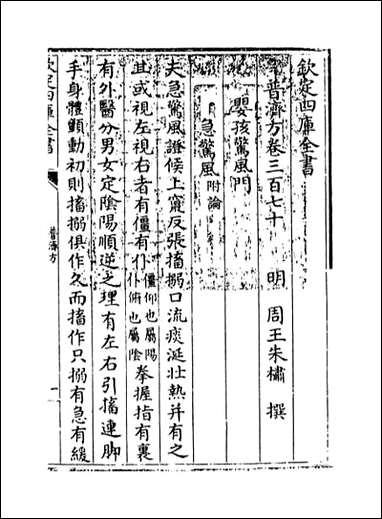 欽定四庫全書
普濟方卷三百七十
明 周王朱橚 撰
嬰孩驚風門
急驚風附論
夫急驚風證候上竄反張搐搦口流痰涎壯熱并有之
其或視左視右者有僵有仆僵仰也屬陽仆俯也屬陰拳握指有裏
有外醫分男女定陰陽順逆之理有左右引搐連脚
手身體顫動初則搐搦俱作久而搐作只搦有急有緩
欽定四庫全書
普濟方
一